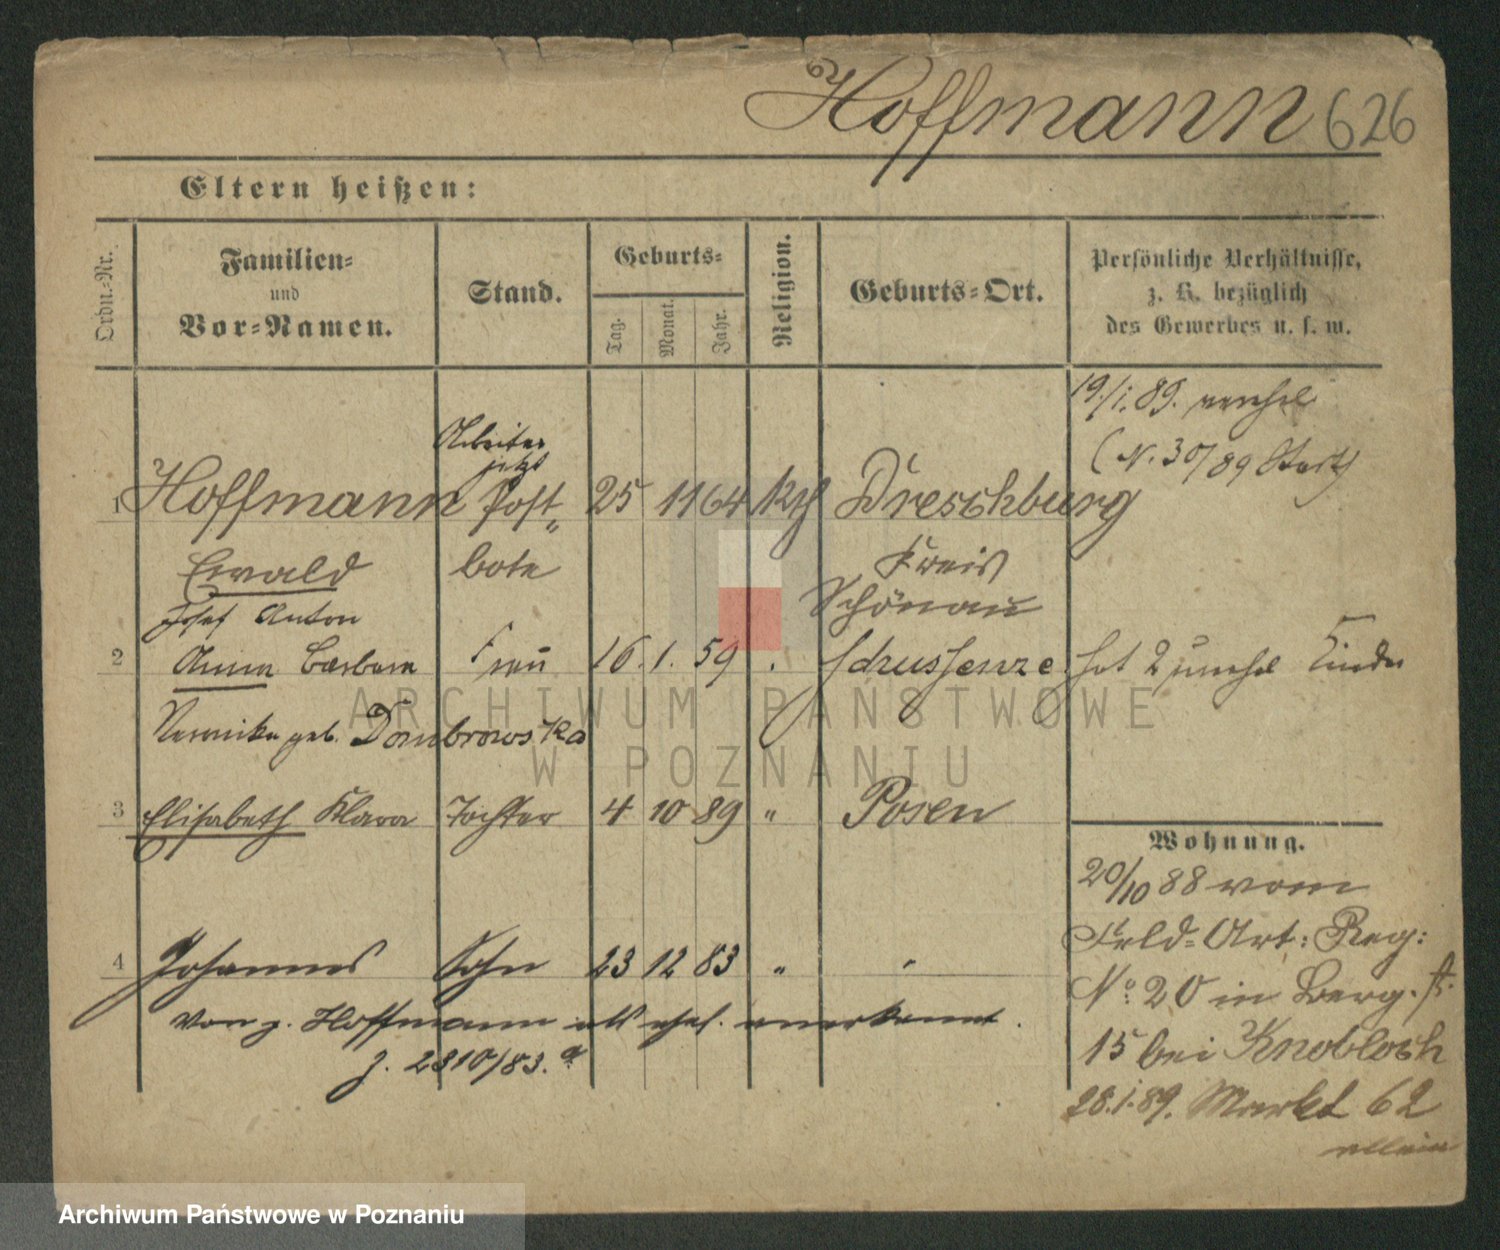 Hoffmann 626
Eltern heißen:
Ordn.-Nr.
Familien-
und
Vor-Namen.
Stand.
Geburts-
Tag.
Monat.
Jahr.
Religion.
Geburts-Ort.
Persönliche Verhältnisse,
z. B. bezüglich
des Gewerbes u. s. w.
19./1. 89. verehel
(N. 30/89 Start)
Arbeiter
jetzt
1 Hoffmann Post- 25 11 64 Kth Dreschburg
Ewald bote Kreis
Josef Anton Schönau
2 Anna Barbara Frau 16. 1. 59 hat 2 unehel Kinder
Veronika geb. Dombrowska
3 Elisabeth Klara Tochter 4 10 89 " Posen
4 Johannes Sohn 23 12 83 " "
von p. Hoffmann als ehel. anerkannt.
J. 2310/83.
Wohnung.
20/10 88 vom
Feld-Art: Reg:
No: 20 in Berg. st.
15 bei Knobloch
28.1.89. Markt 62
allein
ARCHIWUM PAŃSTWOWE
W POZNANIU
Archiwum Państwowe w Poznaniu